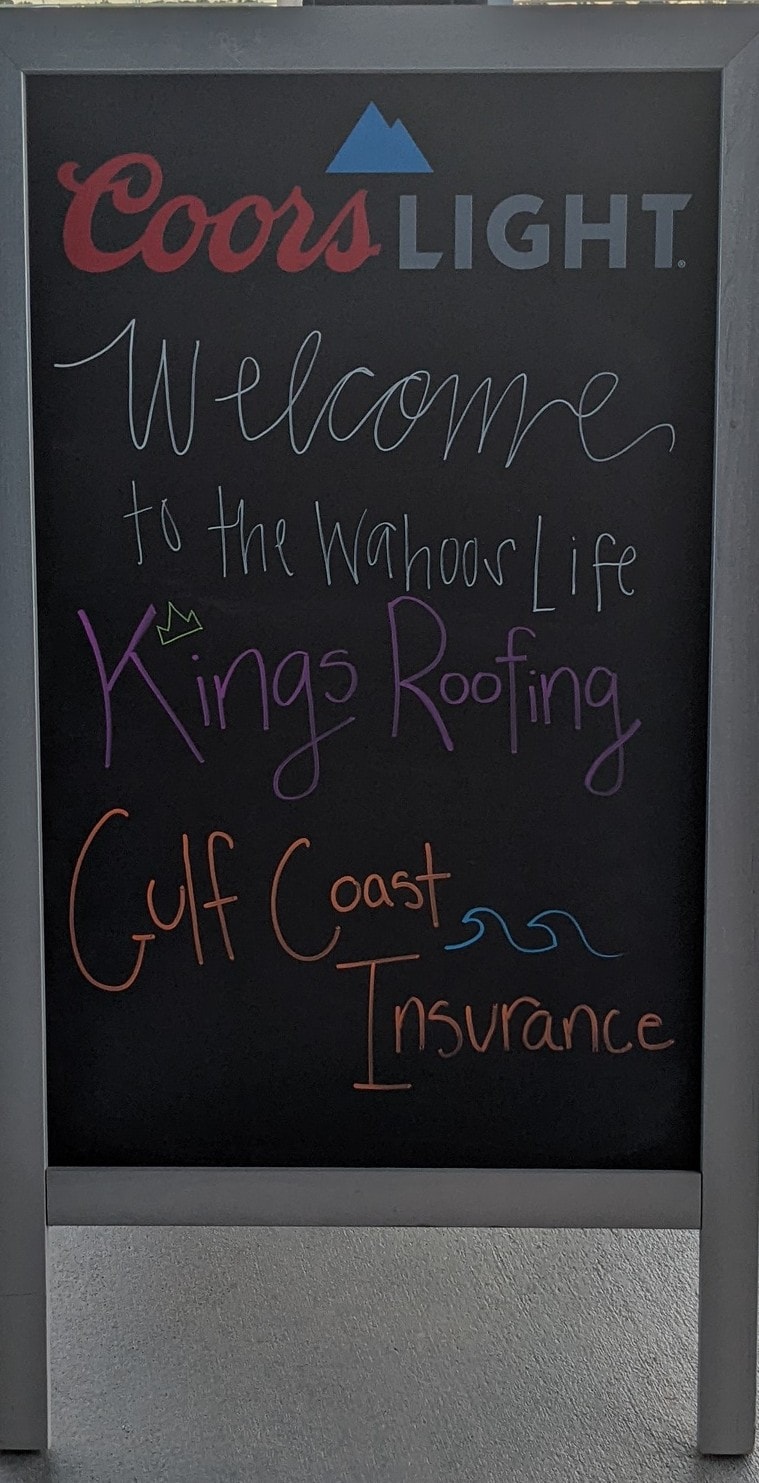 Coors LIGHT
Welcome
to the Wahoos Life
Kings Roofing
Gulf Coast
Insurance